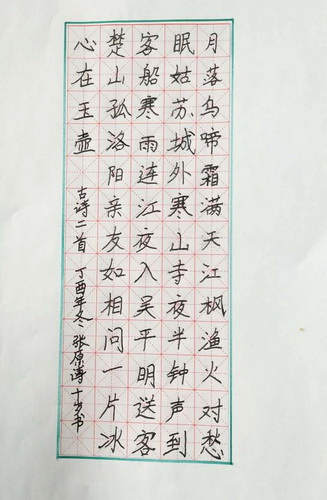 月落乌啼霜满天江枫渔火对愁
眠姑苏城外寒山寺夜半钟声到
客船寒雨连江夜入吴平明送客
楚山孤洛阳亲友如相问一片冰
心在玉壶
古诗二首 丁酉年冬 张原 十岁书